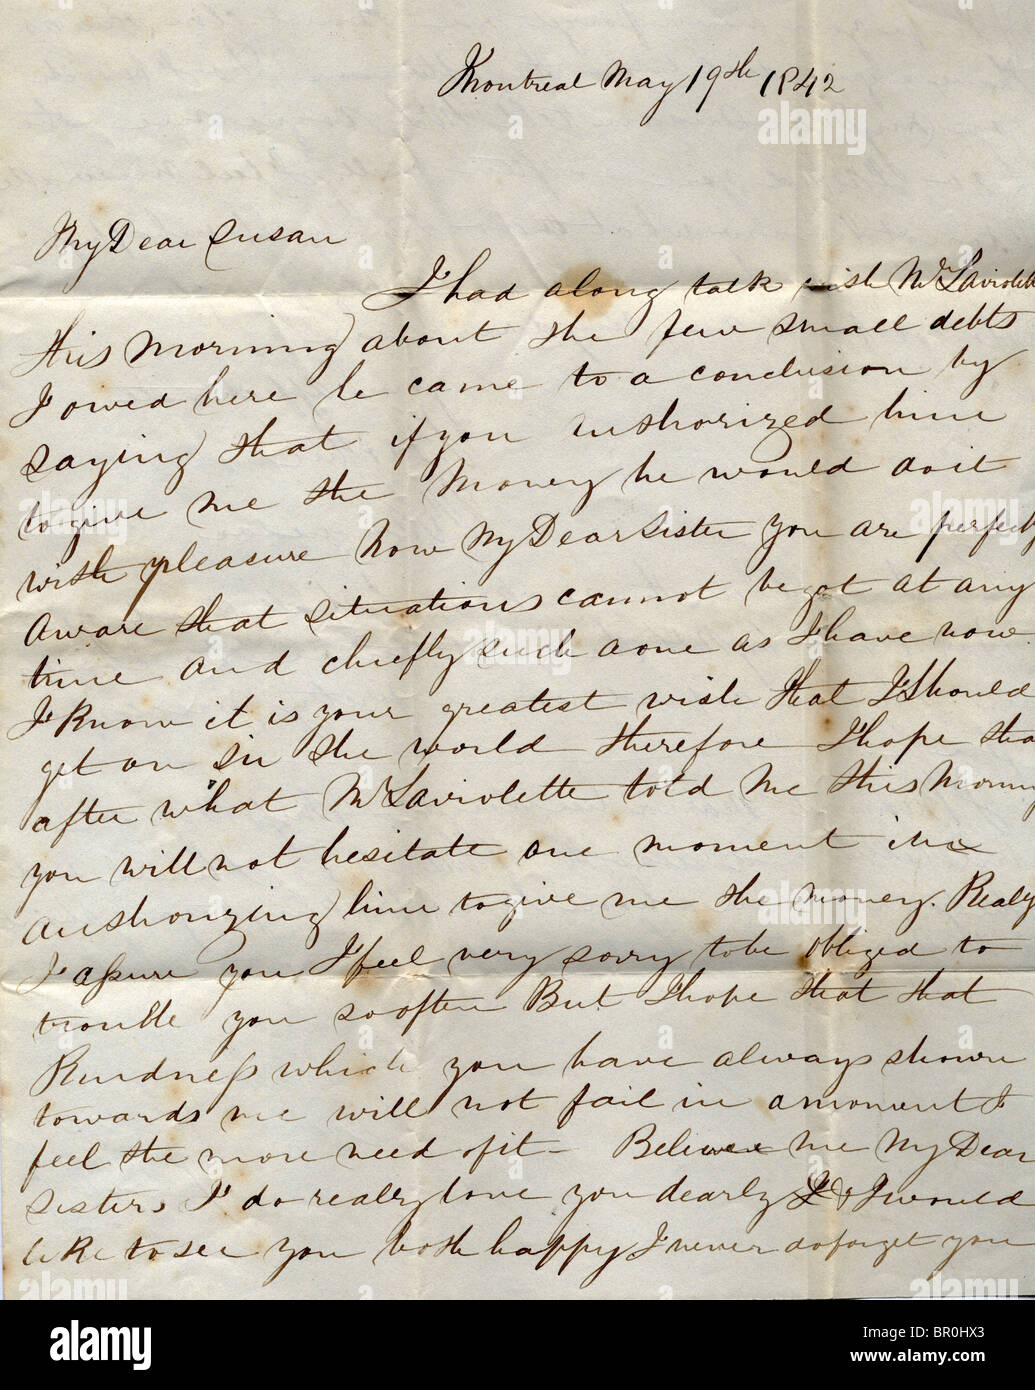 Montreal May 19th 1842
My Dear Susan
I had along talk with Mr Laviolett
this Morning about the few small debts
I owed here he came to a conclusion by
saying that if you authorized him
to give me the Money he would do it
with pleasure Now My Dear Sister you are perfectly
Aware that situations cannot be got at any
time and chiefly such a one as I have now
I Know it is your greatest wish that I Should
get on in the world therefore I hope tha
after what Mr Laviolette told Me this Morning
you will not hesitate one moment in
authorizing him to give me the money. Realy
I assure you I feel very sorry to be obliged to
trouble you so often But I hope that that
Kindness which you have always shown
towards me will not fail in a moment I
feel the more need of it - Believe me My Dear
sisters I do realy love you dearly & I would
like to see you both happy I never do forget you
alamy
Image ID: BR0HX3
www.alamy.com